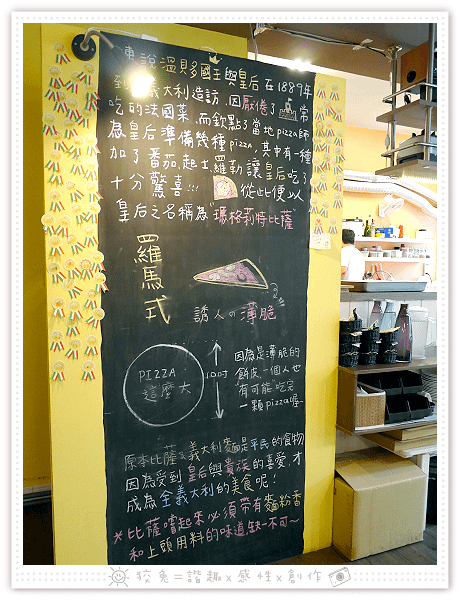 傳說溫貝多國王與皇后在1889年
到義大利造訪,因厭倦了常
吃的法國菜,而欽點了當地pizza師
為皇后準備幾種pizza,其中有一種
加了番茄.起士.羅勒讓皇后吃了
十分驚喜!!! 從此便以
皇后之名稱為"瑪格莉特比薩"
羅馬式
誘人の薄脆
PIZZA
這麼大
10吋
因為是薄脆的
餅皮一個人也
有可能吃完
一顆pizza喔~
原本比薩&義大利麵是平民的食物
因為受到皇后與貴族的喜愛,才
成為全義大利的美食呢!
*比薩嚐起來必須帶有麵粉香
和上頭用料的味道,缺一不可~
狡兔=諧趣x感性x創作